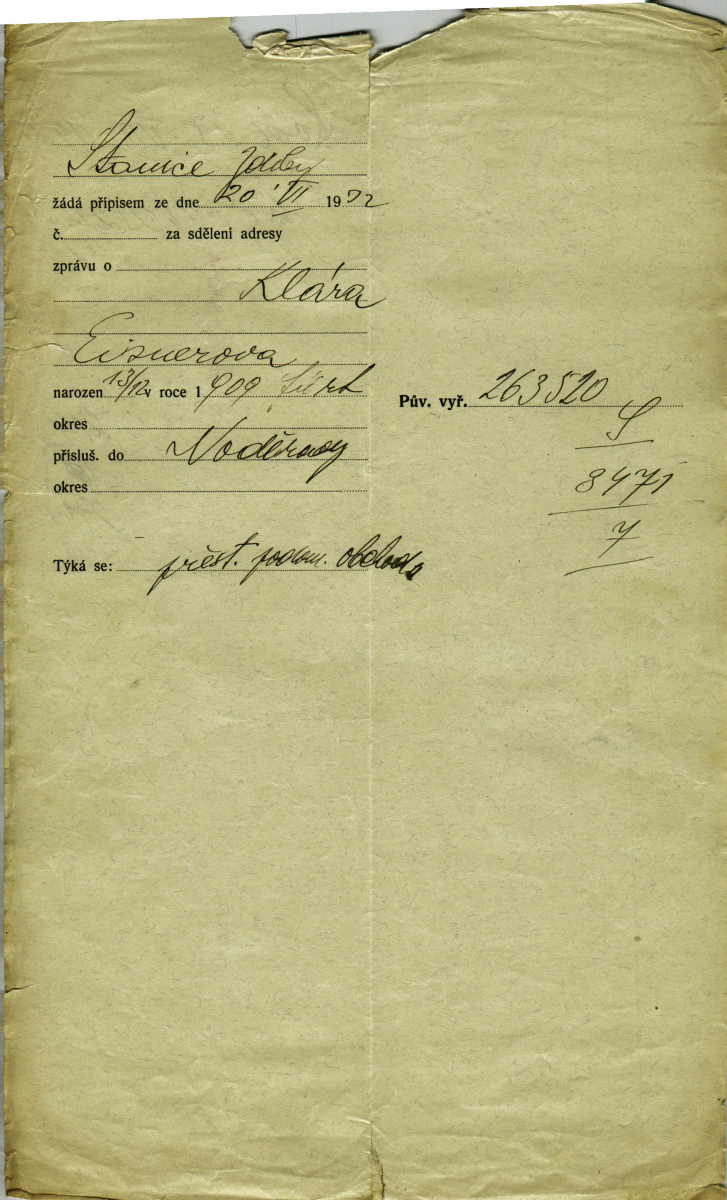 Stanice Zdiby
žádá přípisem ze dne 20 VII 1932
č. za sdělení adresy
zprávu o
Klára
Eisnerova
narozen 13/12 v roce 1909
okres
přísluš. do Voděrady
okres
Týká se: přest. podom. obchodu
Pův. vyř. 263520
S
8471
7